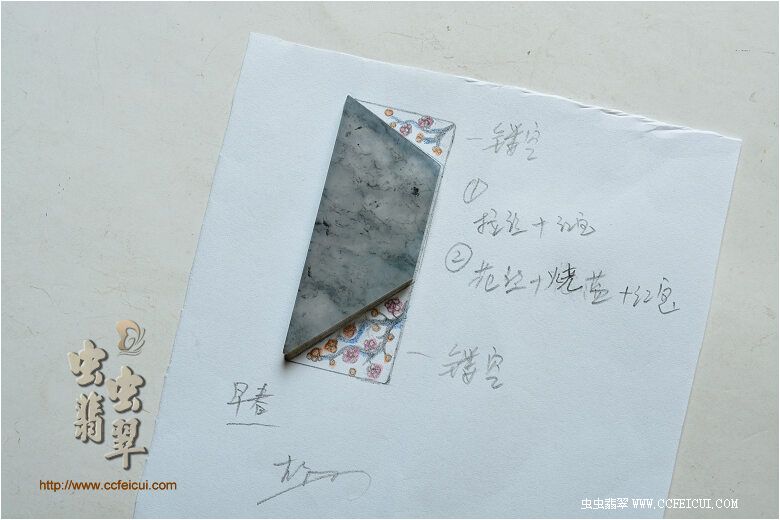 一镂空
①
拉丝+红宝
②
花丝+烧蓝+红宝
一镂空
早春
虫虫翡翠
http://www.ccfeicui.com
虫虫翡翠 WWW.CCFEICUI.COM